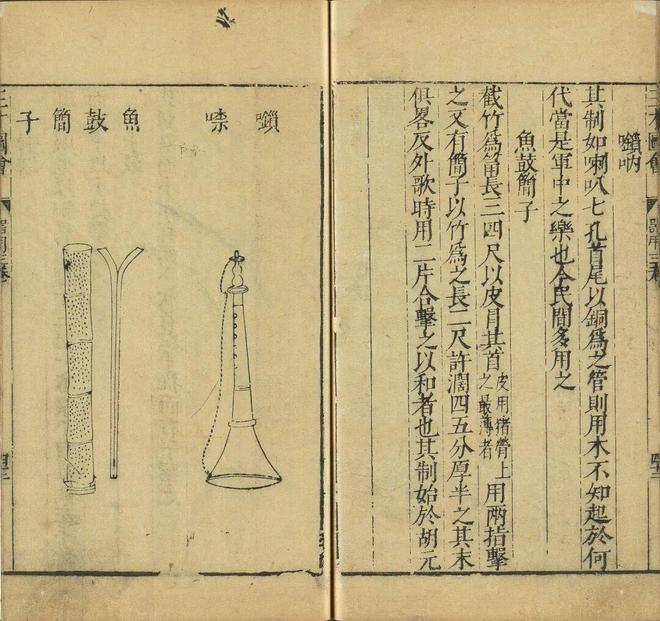 三才圖會
器用三卷
嗩吶
其制如喇叭七孔首尾以銅爲之管則用木不知起於何
代當是軍中之樂也今民間多用之
魚鼓簡子
截竹爲筩長三四尺以皮冒其首皮用猪膋上之最薄者用兩指擊
之又有簡子以竹爲之長二尺許濶四五分厚半之其末
俱畧反外歌時用二片合擊之以和者也其制始於胡元
嗩
魚鼓簡子
三才圖會
器用三卷